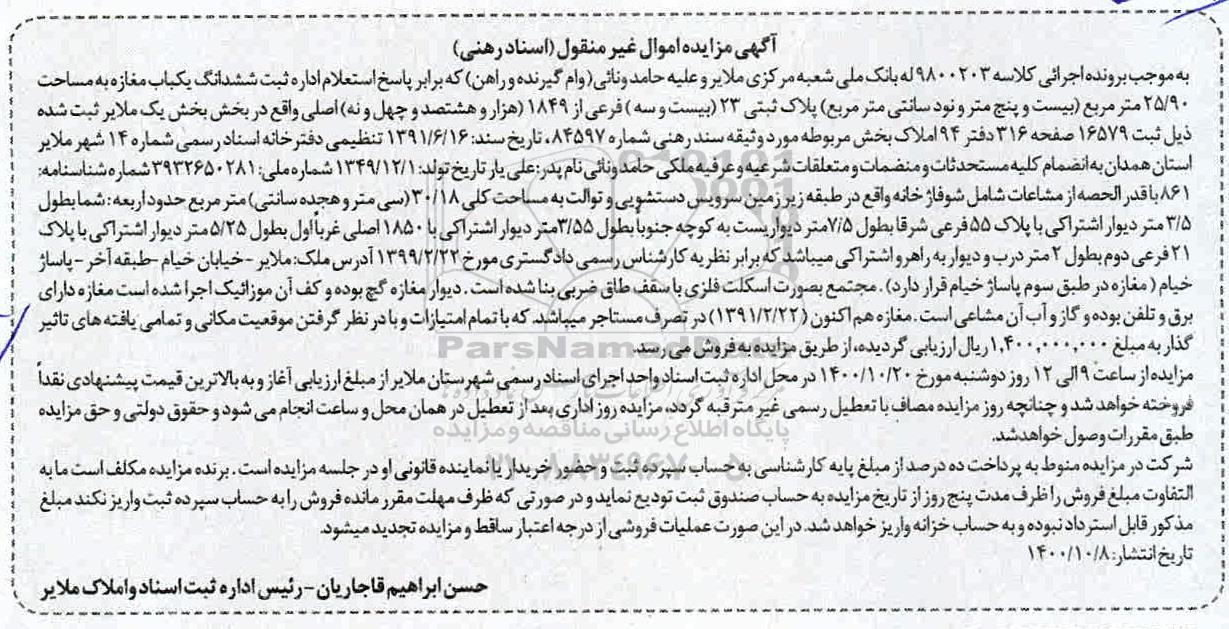 آگهی مزایده اموال غیر منقول (اسناد رهنی)
به موجب پرونده اجرائی کلاسه ۹۸۰۰۲۰۳ له بانک ملی شعبه مرکزی ملایر و علیه حامد ونائی (وام گیرنده و راهن) که برابر پاسخ استعلام اداره ثبت ششدانگ یکباب مغازه به مساحت
۲۵/۹۰ متر مربع (بیست و پنج متر و نود سانتی متر مربع) پلاک ثبتی ۲۳ (بیست و سه ) فرعی از ۱۸۴۹ (هزار و هشتصد و چهل و نه) اصلی واقع در بخش بخش یک ملایر ثبت شده
ذیل ثبت ۱۶۵۷۹ صفحه ۳۱۶ دفتر ۹۴ املاک بخش مربوطه مورد وثیقه سند رهنی شماره ۸۴۵۹۷، تاریخ سند: ۱۳۹۱/۶/۱۶ تنظیمی دفتر خانه اسناد رسمی شماره ۱۴ شهر ملایر
استان همدان به انضمام کلیه مستحدثات و منضمات و متعلقات شرعیه و عرفیه ملکی حامد ونائی نام پدر: علی یار تاریخ تولد: ۱۳۴۹/۱۲/۱ شماره ملی: ۳۹۳۲۶۵۰۲۸۱ شماره شناسنامه:
۸۶۱ با قدر الحصه از مشاعات شامل شوفاژ خانه واقع در طبقه زیر زمین سرویس دستشویی و توالت به مساحت کلی ۳۰/۱۸ (سی متر و هجده سانتی) متر مربع حدود اربعه: شما بطول
۳/۵ متر دیوار اشتراکی با پلاک ۵۵ فرعی شرقا بطول ۷/۵ متر دیواریست به کوچه جنوباً بطول ۳/۵۵ متر دیوار اشتراکی با ۱۸۵۰ اصلی غرباً اول بطول ۵/۲۵ متر دیوار اشتراکی با پلاک
۲۱ فرعی دوم بطول ۲ متر درب و دیوار به راهرو اشتراکی میباشد که برابر نظریه کارشناس رسمی دادگستری مورخ ۱۳۹۹/۲/۲۲ آدرس ملک: ملایر -خیابان خیام -طبقه آخر -پاساژ
خیام ( مغازه در طبق سوم پاساژ خیام قرار دارد) . مجتمع بصورت اسکلت فلزی با سقف طاق ضربی بنا شده است . دیوار مغازه گچ بوده و کف آن موزائیک اجرا شده است مغازه دارای
برق و تلفن بوده و گاز و آب آن مشاعی است . مغازه هم اکنون (۱۳۹۱/۲/۲۲) در تصرف مستاجر میباشد که با تمام امتیازات و با در نظر گرفتن موقعیت مکانی و تمامی یافته های تاثیر
گذار به مبلغ ۱,۴۰۰,۰۰۰,۰۰۰ ریال ارزیابی گردیده، از طریق مزایده به فروش می رسد.
ParsNamadData
مزایده از ساعت ۹ الی ۱۲ روز دوشنبه مورخ ۱۴۰۰/۱۰/۲۰ در محل اداره ثبت اسناد واحد اجرای اسناد رسمی شهرستان ملایر از مبلغ ارزیابی آغاز و به بالاترین قیمت پیشنهادی نقداً
فروخته خواهد شد و چنانچه روز مزایده مصاف با تعطیل رسمی غیر مترقبه گردد، مزایده روز اداری بعد از تعطیل در همان محل و ساعت انجام می شود و حقوق دولتی و حق مزایده
پایگاه اطلاع رسانی مناقصه و مزایده
طبق مقررات وصول خواهد شد.
شرکت در مزایده منوط به پرداخت ده درصد از مبلغ پایه کارشناسی به حساب سپرده ثبت و حضور خریدار یا نماینده قانونی او در جلسه مزایده است . برنده مزایده مکلف است ما به
التفاوت مبلغ فروش را ظرف مدت پنج روز از تاریخ مزایده به حساب صندوق ثبت تودیع نماید و در صورتی که ظرف مهلت مقرر مانده فروش را به حساب سپرده ثبت واریز نکند مبلغ
مذکور قابل استرداد نبوده و به حساب خزانه واریز خواهد شد. در این صورت عملیات فروشی از درجه اعتبار ساقط و مزایده تجدید میشود.
تاریخ انتشار: ۱۴۰۰/۱۰/۸
حسن ابراهیم قاجاریان – رئیس اداره ثبت اسناد و املاک ملایر